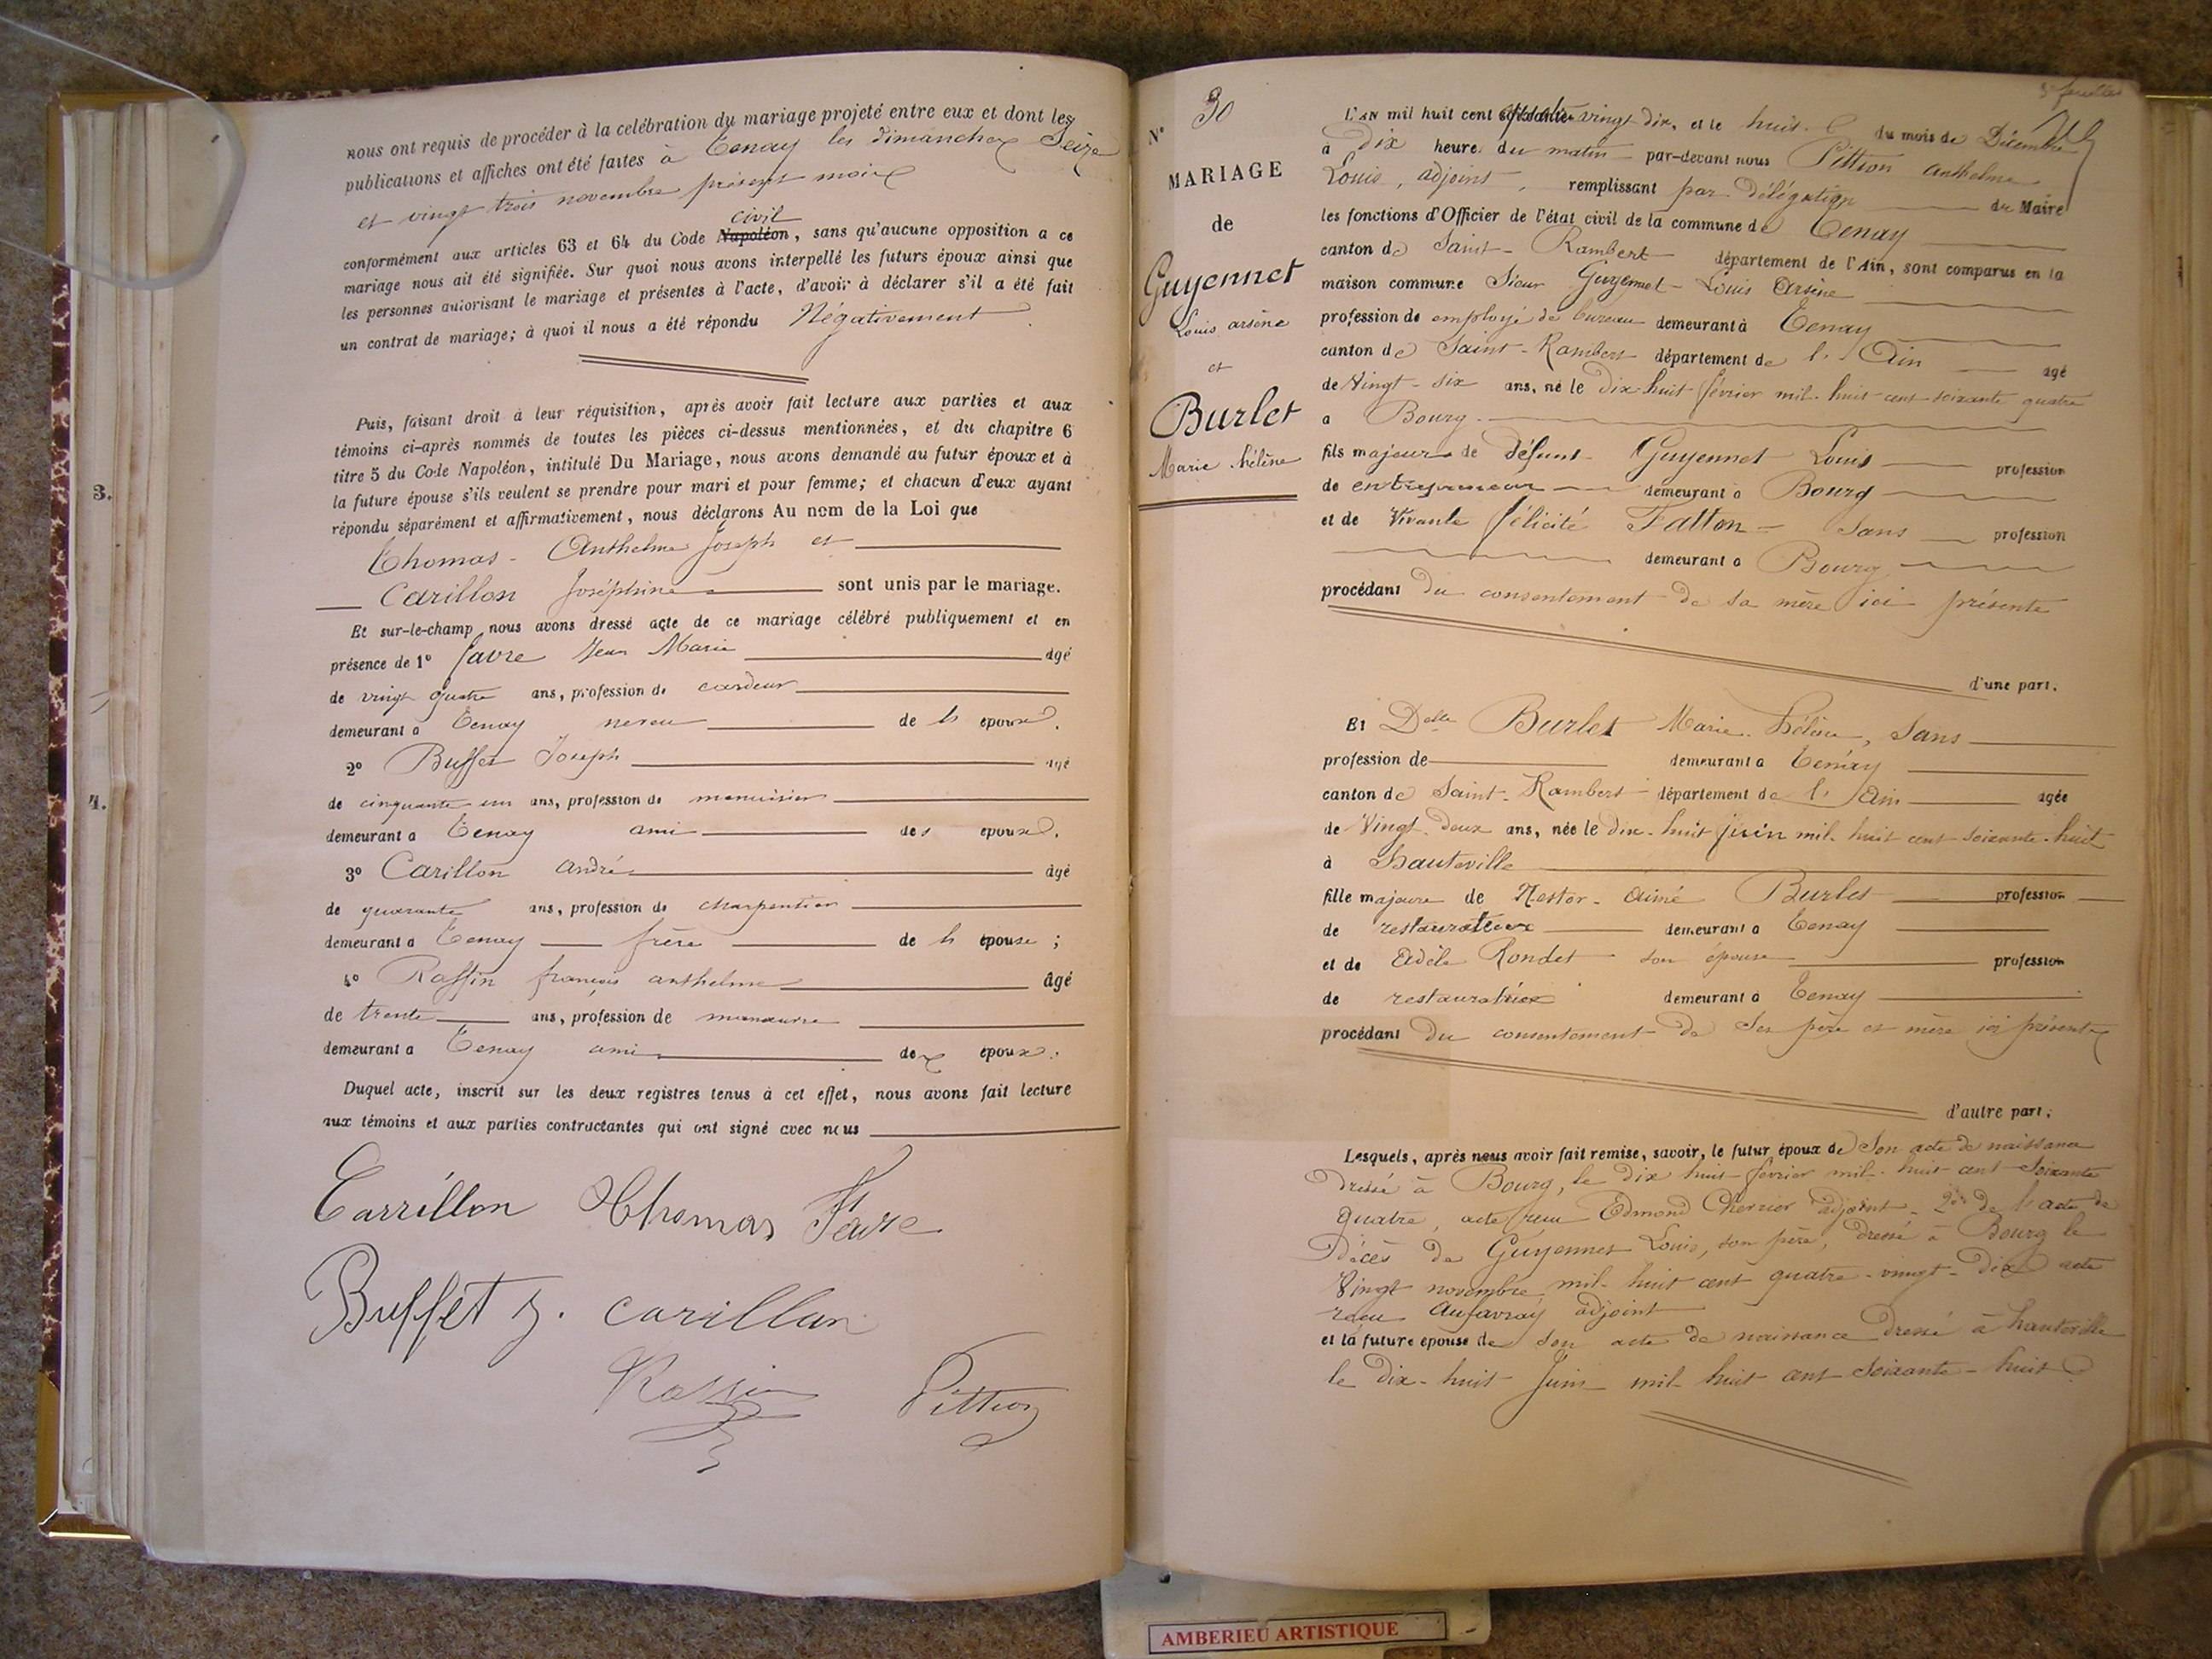 nous ont requis de procéder à la celébration du mariage projeté entre eux et dont les
publications et affiches ont été faites à Tenay les dimanches Seize
et vingt trois novembre présent mois
civil
conformément aux articles 63 et 64 du Code Napoléon, sans qu'aucune opposition a ce
mariage nous ait été signifiée. Sur quoi nous avons interpellé les futurs époux ainsi que
les personnes autorisant le mariage et présentes à l'acte, d'avoir à déclarer s'il a été fait
un contrat de mariage; à quoi il nous a été répondu Négativement
Puis, faisant droit à leur réquisition, après avoir fait lecture aux parties et aux
témoins ci-après nommés de toutes les pièces ci-dessus mentionnées, et du chapitre 6
titre 5 du Code Napoléon, intitulé Du Mariage, nous avons demandé au futur époux et à
la future épouse s'ils veulent se prendre pour mari et pour femme; et chacun d'eux ayant
répondu séparément et affirmativement, nous déclarons Au nom de la Loi que
Thomas - Anthelme Joseph et
Carillon Joséphine sont unis par le mariage.
Et sur-le-champ nous avons dressé acte de ce mariage célébré publiquement et en
présence de 1º favre Jean Marie agé
de vingt quatre ans, profession de cardeur
demeurant a Tenay neveu de l' epouse.
2º Buffet Joseph agé
de cinquante un ans, profession de menuisier
demeurant a Tenay ami des epoux.
3º Carillon andré âgé
de quarante ans, profession de charpentier
demeurant a Tenay frère de l' épouse;
4º Raffin françois anthelme âgé
de trente ans, profession de manœuvre
demeurant a Tenay ami des epoux.
Duquel acte, inscrit sur les deux registres tenus à cet effet, nous avons fait lecture
aux témoins et aux parties contractantes qui ont signé avec nous
Carrillon Thomas Favre
Buffet J. carillon
Raffin Pittion
3.
4.
Nº 30
MARIAGE
de
Guyennet
Louis arsène
et
Burlet
Marie hélène
L'AN mil huit cent quatre vingt dix, et le huit du mois de Décembre
à dix heures du matin par-devant nous Pittion anthelme
Louis, adjoint, remplissant par délégation du Maire
les fonctions d'Officier de l'état civil de la commune de Tenay
canton de Saint-Rambert département de l'Ain, sont comparus en la
maison commune Sieur Guyennet Louis Arsène
profession de employé de bureau demeurant à Tenay
canton de Saint-Rambert département de l'Ain agé
de Vingt-six ans, né le dix huit février mil huit cent soixante quatre
a Bourg
fils majeur de défunt Guyennet Louis profession
de entrepreneur demeurant a Bourg
et de Vivante félicité Fatton - Sans profession
demeurant a Bourg
procédant du consentement de sa mère ici présente
d'une part.
Et Delle Burlet Marie hélène, Sans
profession de demeurant a Tenay
canton de Saint-Rambert département de l'Ain agée
de Vingt deux ans, née le dix-huit juin mil huit cent soixante-huit
à hauteville
fille majeure de Nestor-aimé Burlet profession
de restaurateur demeurant a Tenay
et de Adèle Rondet son épouse profession
de restauratrice demeurant à Tenay
procédant du consentement de ses père et mère ici présents
d'autre part.
Lesquels, après nous avoir fait remise, savoir, le futur époux de Son acte de naissance
dressé à Bourg, le dix huit février mil huit cent soixante
quatre, acte reçu Edmond adjoint. de l'acte de
Décès de Guyennet Louis, son père, dressé à Bourg le
Vingt novembre mil huit cent quatre-vingt-dix acte
reçu adjoint
et la future épouse de son acte de naissance dressé à hauteville
le dix-huit Juin mil huit cent soixante-huit
AMBERIEU ARTISTIQUE